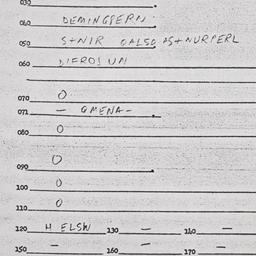 030
040 DEMINGSERN
050 S+NIR OALSO AS+NURPERL
060 DIFROSUM
070 O
071 - OMENA-
080 O
090 O
100 O
110 O
120 H ELSW 130 - 140 -
150 - 160 - 170 -